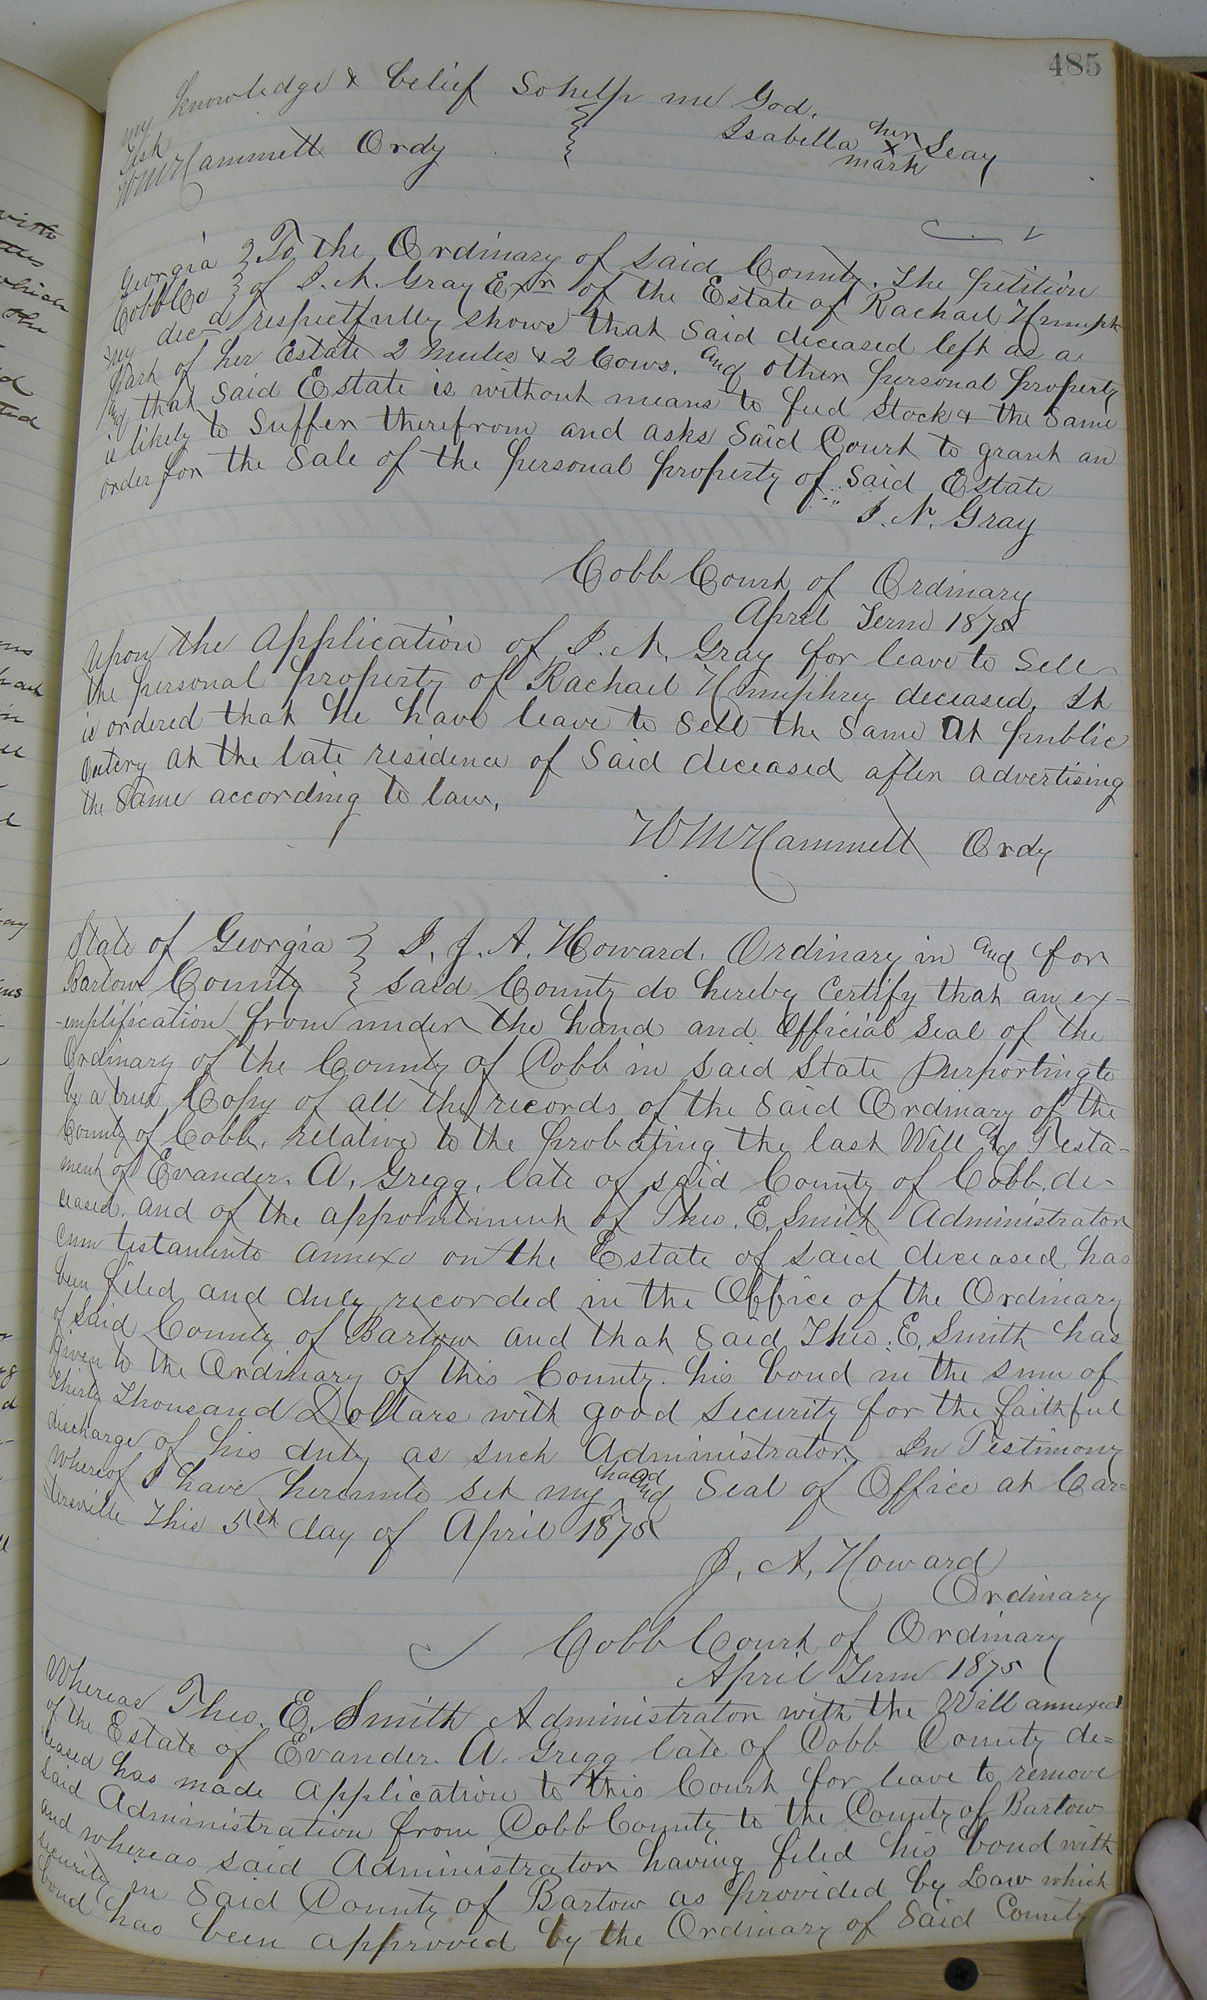 485
my knowledge & belief So help me God.
Isabella her x mark Seay
W M Hammett Ordy
Georgia } To the Ordinary of Said County. The petition
Cobb Co } of I. N. Gray Exr of the Estate of Rachael Humph
rey decd respectfully shows that Said deceased left as a
part of her Estate 2 mules & 2 Cows. and other personal property
and that Said Estate is without means to feed Stock & the Same
is likely to Suffer therefrom and asks Said Court to grant an
order for the Sale of the personal property of Said Estate
I. N. Gray
Cobb Court of Ordinary
April Term 1875
Upon the Application of I. N. Gray for leave to Sell
the personal property of Rachael Humphrey deceased, It
is ordered that he have leave to Sell the Same At public
Outcry at the late residence of Said deceased after advertising
the Same according to law.
W M Hammett Ordy
State of Georgia } I, J. A. Howard. Ordinary in and for
Bartow County } Said County do hereby Certify that an ex-
-emplification from under the hand and Official Seal of the
Ordinary of the County of Cobb in Said State purporting to
be a true Copy of all the records of the Said Ordinary of the
County of Cobb, relative to the probating the last Will & Testa-
ment of Evander. A. Gregg, late of said County of Cobb, de-
ceased, and of the appointment of Theo. E. Smith Administrator
cum testamento annexo on the Estate of said deceased has
been filed and duly recorded in the Office of the Ordinary
of Said County of Bartow and that Said Theo. E. Smith has
Given to the Ordinary of this County. his bond in the sum of
Thirty Thousand Dollars with good Security for the faithful
discharge of his duty as such Administrator. In Testimony
Whereof I have hereunto set my hand and Seal of Office at Car=
=tersville This 5th day of April 1875
J. A. Howard
Ordinary
Cobb Court of Ordinary
April Term 1875
Whereas Theo. E. Smith Administrator with the Will annexed
of the Estate of Evander. A. Gregg late of Cobb County de=
ceased has made Application to this Court for leave to remove
Said Administration from Cobb County to the County of Bartow
and whereas said Administrator having filed his bond with
security in Said County of Bartow as provided by Law which
bond has been approved by the Ordinary of Said County